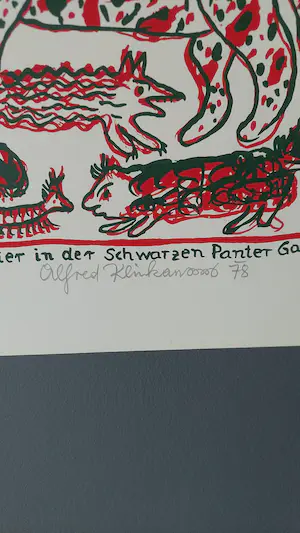 ier in der Schwarzen Panter Ga
Alfred Klinkan 78